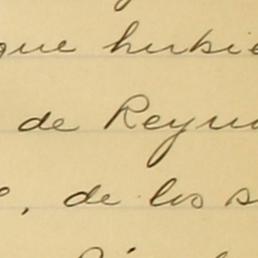 que hubie
de Reyno
, de los s